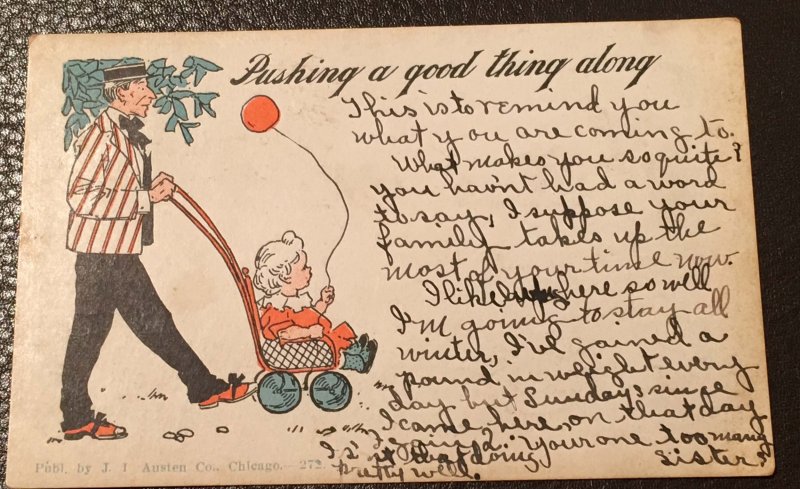 Pushing a good thing along
This is to remind you
what you are coming to.
What makes you so quite?
you havn't had a word
to say, I suppose your
family takes up the
most of your time now.
I like here so well
I'm going to stay all
winter, I've gained a
pound in weight every
day but Sundays since
I came here, on that day
I gained 2. Your one too many
Isn't that doing sister.
pretty well.
Publ. by J. I. Austen Co., Chicago.—272.